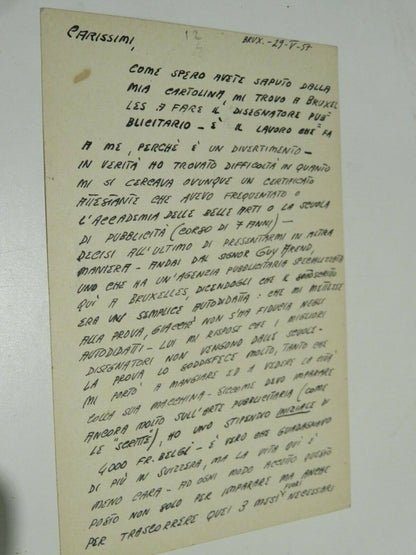 12
5
BRUX. - 29-V-57
CARISSIMI,
COME SPERO AVETE SAPUTO DALLA
MIA CARTOLINA, MI TROVO A BRUXEL
LES A FARE IL DISEGNATORE PUB=
BLICITARIO - È IL LAVORO CHE FA
A ME, PERCHÈ È UN DIVERTIMENTO -
IN VERITÀ HO TROVATO DIFFICOLTÀ IN QUANTO
MI SI CERCAVA OVUNQUE UN CERTIFICATO
ATTESTANTE CHE AVEVO FREQUENTATO O
L'ACCADEMIA DELLE BELLE ARTI O LA SCUOLA
DI PUBBLICITÀ (CORSO DI 7 ANNI) -
DECISI ALL'ULTIMO DI PRESENTARMI IN ALTRA
MANIERA - ANDAI DAL SIGNOR GUY AREND,
UNO CHE HA UN'AGENZIA PUBBLICITARIA SPECIALIZZATA
QUI A BRUXELLES, DICENDOGLI CHE IL SOTTOSCRITTO
ERA UN SEMPLICE AUTODIDATTA: CHE MI METTESSE
ALLA PROVA, GIACCHÈ NON S'HA FIDUCIA NEGLI
AUTODIDATTI - LUI MI RISPOSE CHE I MIGLIORI
DISEGNATORI NON VENGONO DALLE SCUOLE -
LA PROVA LO SODDISFECE MOLTO, TANTO CHE
MI PORTÒ A MANGIARE ED A VEDERE LA CITTÀ
COLLA SUA MACCHINA - SICCOME DEVO IMPARARE
ANCORA MOLTO SULL'ARTE PUBBLICITARIA (COME
LE "SCRITTE"), HO UNO STIPENDIO INIZIALE DI
4000 FR. BELGI - È VERO CHE GUADAGNAVO
DI PIÙ IN SVIZZERA, MA LA VITA QUI È
MENO CARA - AD OGNI MODO ACCETTO QUESTO
POSTO NON SOLO PER IMPARARE MA ANCHE
PER TRASCORRERE QUEI 3 MESI FUORI NECESSARI